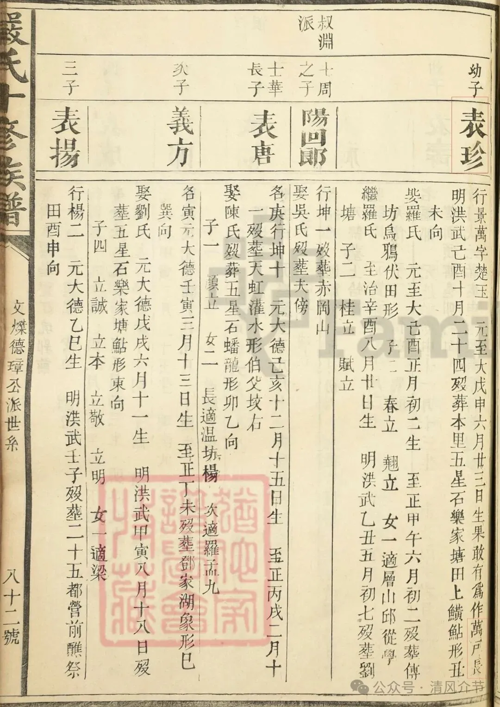 幼子
表珍
行景萬字楚玉 元至大戊申六月廿三日生果敢有為作萬戶長
明洪武己酉十月二十四歿葬本里五星石樂家塘田上鐄鮎形丑
未向
娶羅氏 元至大己酉正月初二生 至正甲午六月初二歿葬傅
坊烏鴉伏田形 子二 春立 翹立 女一適層山邱從學
繼羅氏 至治辛酉八月廿日生 明洪武乙丑五月初七歿葬劉
塘 子二 桂立 賦立
叔淵派
十周之子
陽回郎
行坤一歿葬赤岡山
娶吳氏歿葬夫傍
士華長子
表唐
名庚行坤十 元大德己亥十二月十五日生 至正丙戌二月十
一歿葬天虹灌水形伯父墳右
娶陳氏歿葬五星石蟠龍形卯乙向
子一 立 女二 長適温坊楊 次適羅孟九
次子
義方
名寅 元大德壬寅三月十三日生 至正丁未歿葬鄧家湖象形巳
巽向
娶劉氏 元大德戊戌六月十一生 明洪武甲寅八月十八日歿
葬五星石樂家塘鮎形東向
子四 立誠 立本 立敬 立明 女一適梁
三子
表揚
行楊二 元大德乙巳生 明洪武壬子歿葬二十五都營前醮祭
田酉申向
嚴氏十修族譜
文煠德璋公派世系
八十二號
公众号·清风介节